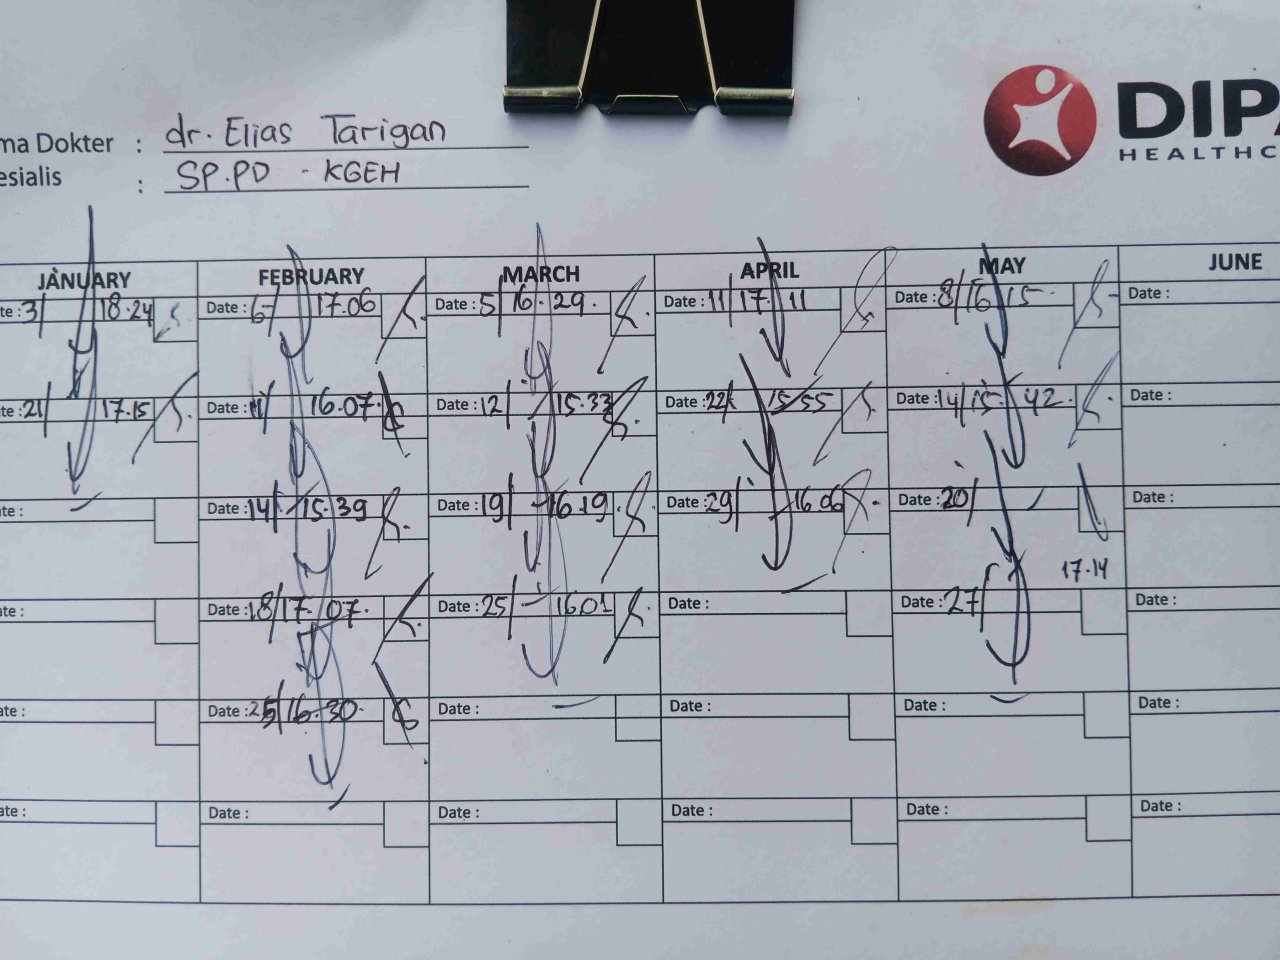 DIPA
HEALTHC
ma Dokter : dr. Elias Tarigan
esialis : SP.PD - KGEH
JANUARY FEBRUARY MARCH APRIL MAY JUNE
te: 3/ 18.24 Date: 6/ 17.06 Date: 5/ 16.29. Date: 11/ 17.11 Date: 8/ 16.15 Date:
te: 21/ 17.15 Date: 11/ 16.07. Date: 12/ 15.33 Date: 22/ 15.55 Date: 14/ 15.42. Date:
te: Date: 14/ 15.39 Date: 19/ 16.19. Date: 29/ 16.06 Date: 20/ Date:
17.14
te: Date: 18/ 17.07. Date: 25/ 16.01 Date: Date: 27/ Date:
ate: Date: 25/ 16.30. Date: Date: Date: Date:
ate: Date: Date: Date: Date: Date: